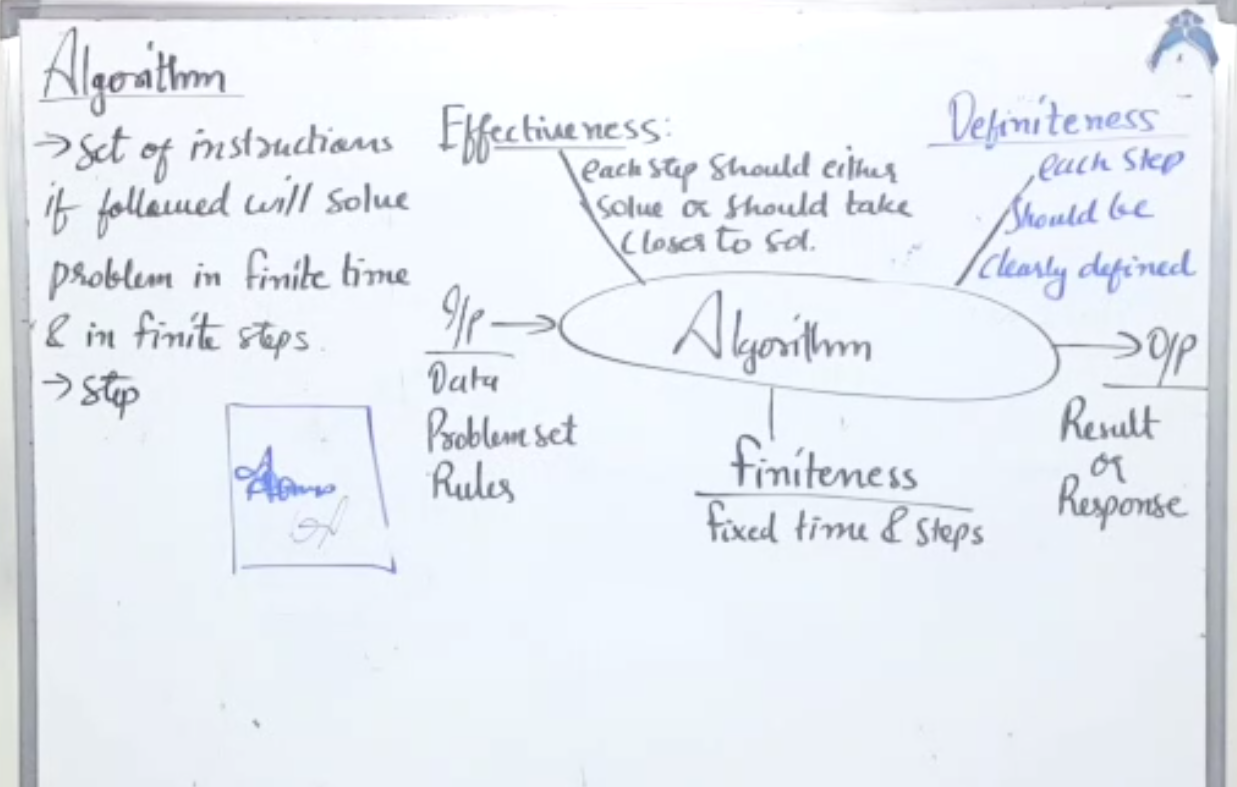 Algorithm
→ Set of instructions
if followed will solve
problem in finite time
& in finite steps.
→ Step
Effectiveness:
each step should either
solve or should take
closer to sol.
Definiteness
each step
should be
clearly defined
I/P →
Data
Problem set
Rules
Algorithm
→ O/P
Result
or
Response
finiteness
fixed time & steps
A